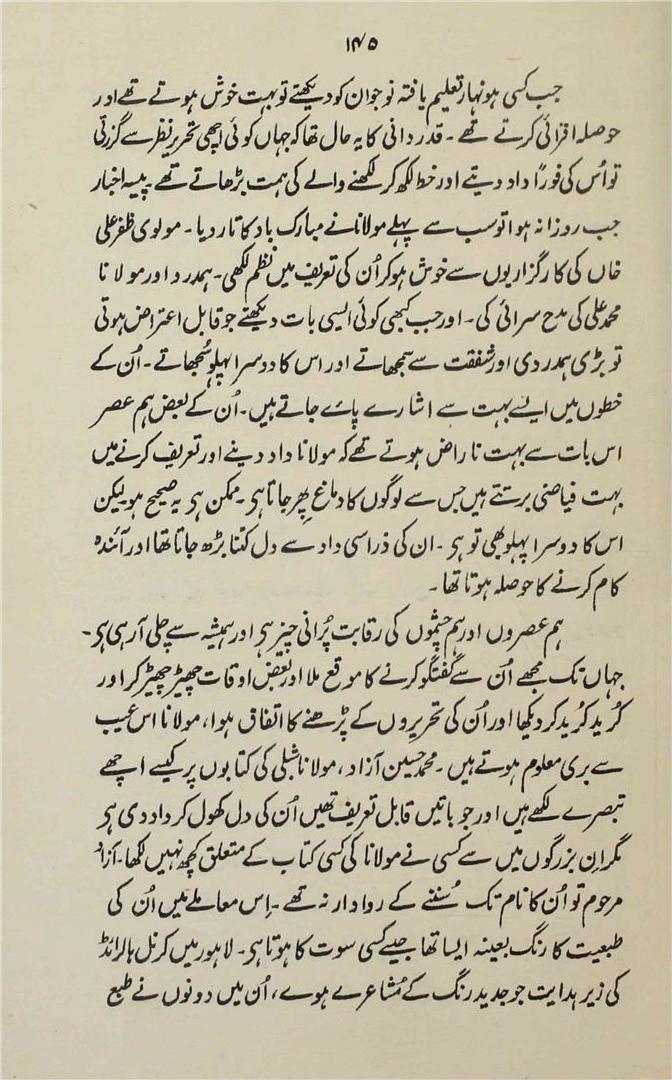 ۱۴۵
جب کسی ہونہار تعلیم یافتہ نوجوان کو دیکھتے تو بہت خوش ہوتے تھے اور
حوصلہ افزائی کرتے تھے ۔ قدردانی کا یہ حال تھا کہ جہاں کوئی اچھی تحریر نظر سے گزرتی
تو اُس کی فوراً داد دیتے اور خط لکھ کر لکھنے والے کی ہمت بڑھاتے تھے ۔ پیسہ اخبار
جب روزانہ ہوا تو سب سے پہلے مولانا نے مبارک باد کا تار دیا ۔ مولوی ظفر علی
خاں کی کارگزاریوں سے خوش ہو کر اُن کی تعریف میں نظم لکھی ۔ ہمدرد اور مولانا
محمد علی کی مدح سرائی کی ۔ اور جب کبھی کوئی ایسی بات دیکھتے جو قابل اعتراض ہوتی
تو بڑی ہمدردی اور شفقت سے سمجھاتے اور اس کا دوسرا پہلو سُجھاتے ۔ اُن کے
خطوں میں ایسے بہت سے اشارے پائے جاتے ہیں ۔ اُن کے بعض ہم عصر
اس بات سے بہت ناراض ہوتے تھے کہ مولانا داد دینے اور تعریف کرنے میں
بہت فیاضی برتتے ہیں جس سے لوگوں کا دماغ پھِر جاتا ہی ۔ ممکن ہی یہ صحیح ہو لیکن
اس کا دوسرا پہلو بھی تو ہی ۔ ان کی ذرا سی داد سے دل کتنا بڑھ جاتا تھا اور آئندہ
کام کرنے کا حوصلہ ہوتا تھا ۔
ہم عصروں اور ہم چشموں کی رقابت پُرانی چیز ہی اور ہمیشہ سے چلی آ رہی ہی ۔
جہاں تک مجھے اُن سے گفتگو کرنے کا موقع ملا اور بعض اوقات چھیڑ چھیڑ کر اور
کُرید کُرید کر دیکھا اور اُن کی تحریروں کے پڑھنے کا اتفاق ہوا ، مولانا اس عیب
سے بری معلوم ہوتے ہیں ۔ محمد حسین آزاد ، مولانا شبلی کی کتابوں پر کیسے اچھے
تبصرے لکھے ہیں اور جو باتیں قابل تعریف تھیں اُن کی دل کھول کر داد دی ہی
مگر اِن بزرگوں میں سے کسی نے مولانا کی کسی کتاب کے متعلق کچھ نہیں لکھا ۔ آزاد
مرحوم تو اُن کا نام تک سُننے کے روادار نہ تھے ۔ اِس معاملے میں اُن کی
طبیعت کا رنگ بعینہ ایسا تھا جیسے کسی سوت کا ہوتا ہی ۔ لاہور میں کرنل ہالرائڈ
کی زیر ہدایت جو جدید رنگ کے مُشاعرے ہوے ، اُن میں دونوں نے طبع